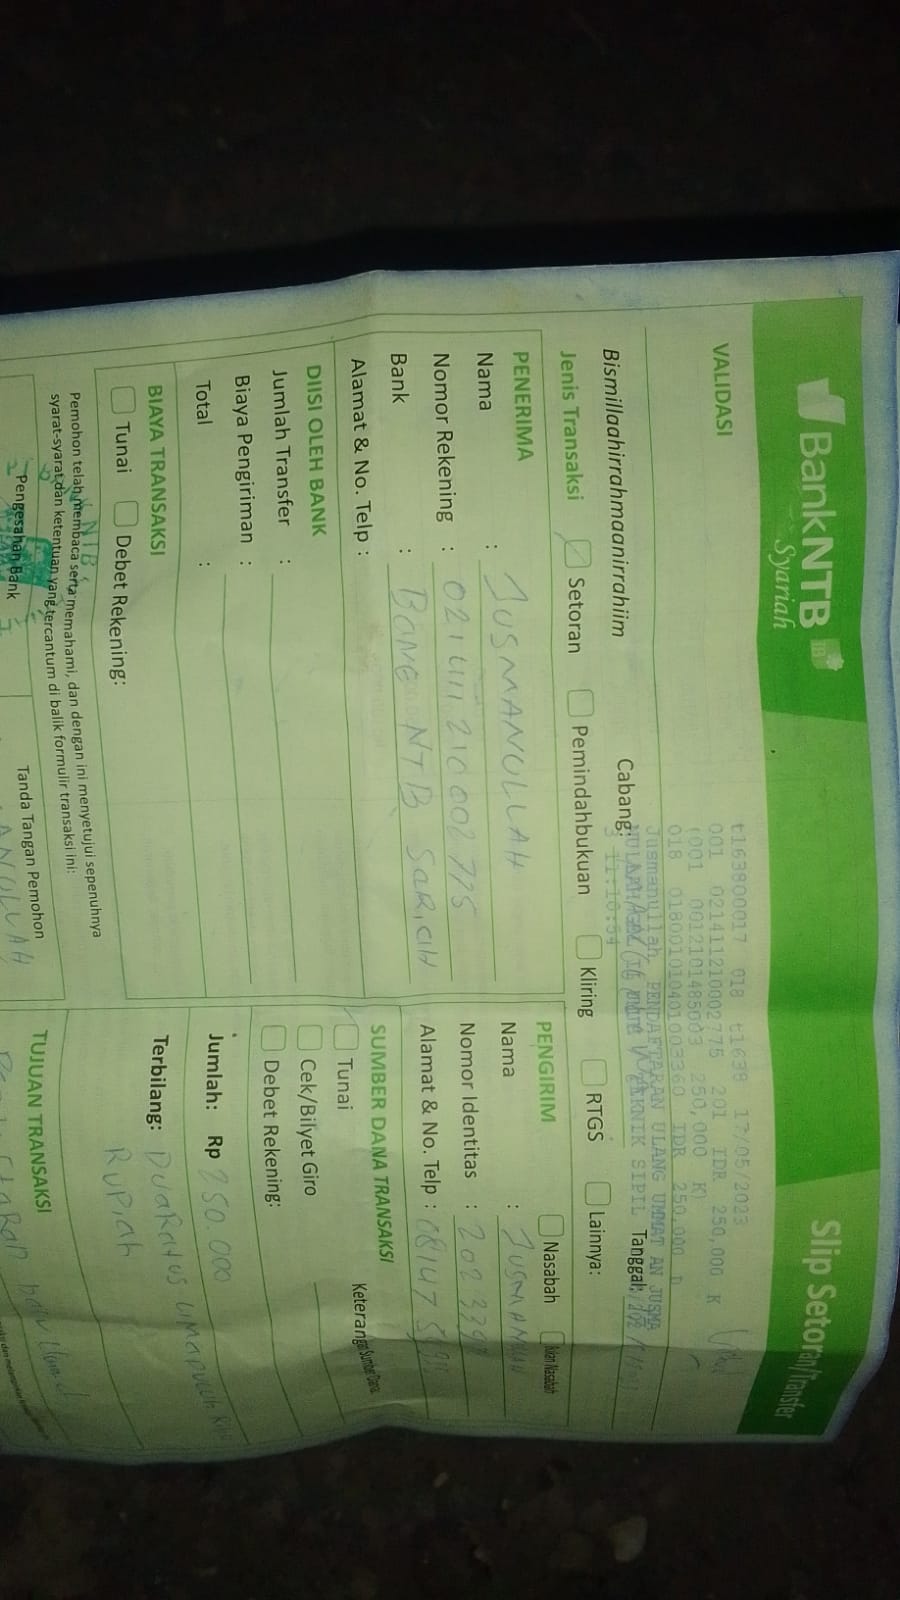 BankNTB
Syariah
Slip Setoran/Transfer
VALIDASI
t163800017 018 t1638 17/05/2023
001 0214112100002775 201 IDR 250,000 K
(001 0012101485003 250,000 K)
018 0180010104010003360 IDR 250,000 D
Jusmanullah, PENDAFTARAN ULANG UMMAT AN JUSMA
TEKNIK SIPIL
11:16:54
Bismillaahirrahmaanirrahiim
Cabang:
Tanggal:
Jenis Transaksi
Setoran
Pemindahbukuan
Kliring
RTGS
Lainnya:
PENERIMA
Nama : JUSMANULLAH
Nomor Rekening : 021 411 210 002 775
Bank : BANK NTB SARIAH
Alamat & No. Telp :
PENGIRIM
Nasabah
Bukan Nasabah
Nama : JUSMANULLAH
Nomor Identitas :
Alamat & No. Telp :
DIISI OLEH BANK
Jumlah Transfer :
Biaya Pengiriman :
Total :
SUMBER DANA TRANSAKSI
Keterangan Sumber Dana:
Tunai
Cek/Bilyet Giro
Debet Rekening:
BIAYA TRANSAKSI
Tunai
Debet Rekening:
Jumlah: Rp 250.000
Terbilang: DUARATUS LIMAPULUH RIBU
RUPIAH
Pemohon telah membaca serta memahami, dan dengan ini menyetujui sepenuhnya
syarat-syarat dan ketentuan yang tercantum di balik formulir transaksi ini:
Pengesahan Bank
Tanda Tangan Pemohon
TUJUAN TRANSAKSI